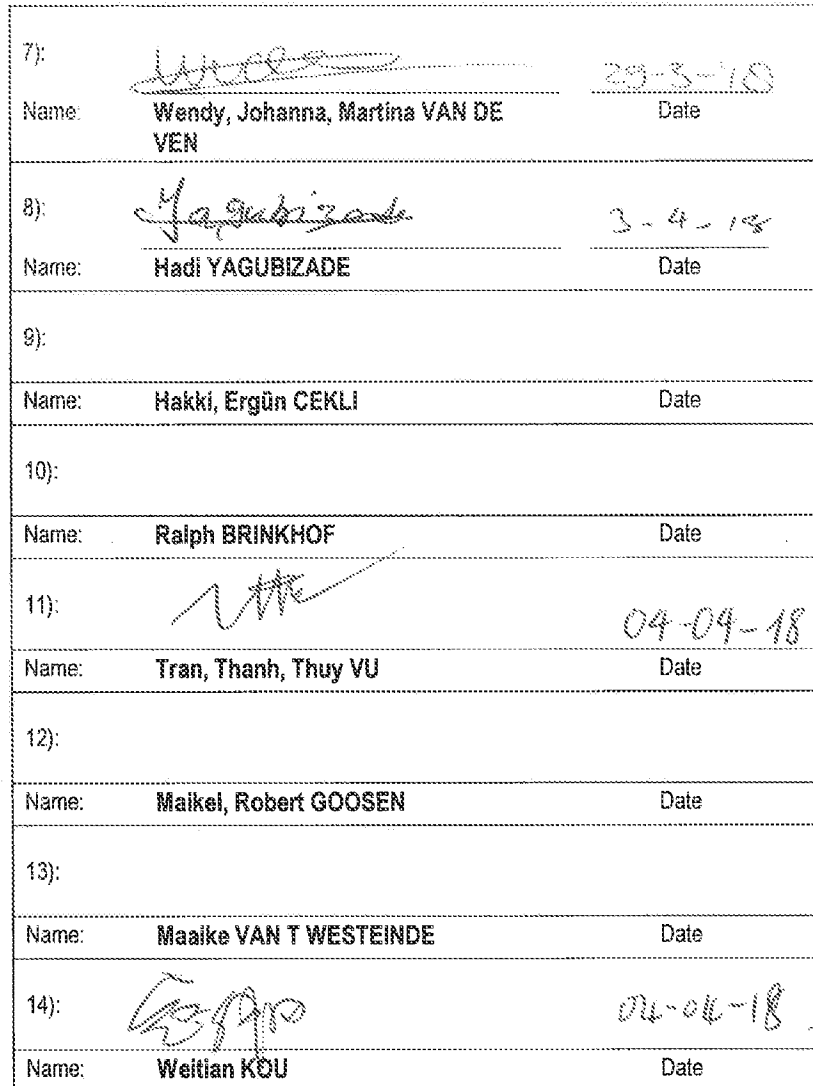 7):
29-3-'18
Name: Wendy, Johanna, Martina VAN DE Date
VEN
8): Yagubizade 3-4-18
Name: Hadi YAGUBIZADE Date
9):
Name: Hakki, Ergün CEKLI Date
10):
Name: Ralph BRINKHOF Date
11): 04-04-18
Name: Tran, Thanh, Thuy VU Date
12):
Name: Maikel, Robert GOOSEN Date
13):
Name: Maaike VAN T WESTEINDE Date
14): 04-04-18
Name: Weitian KOU Date